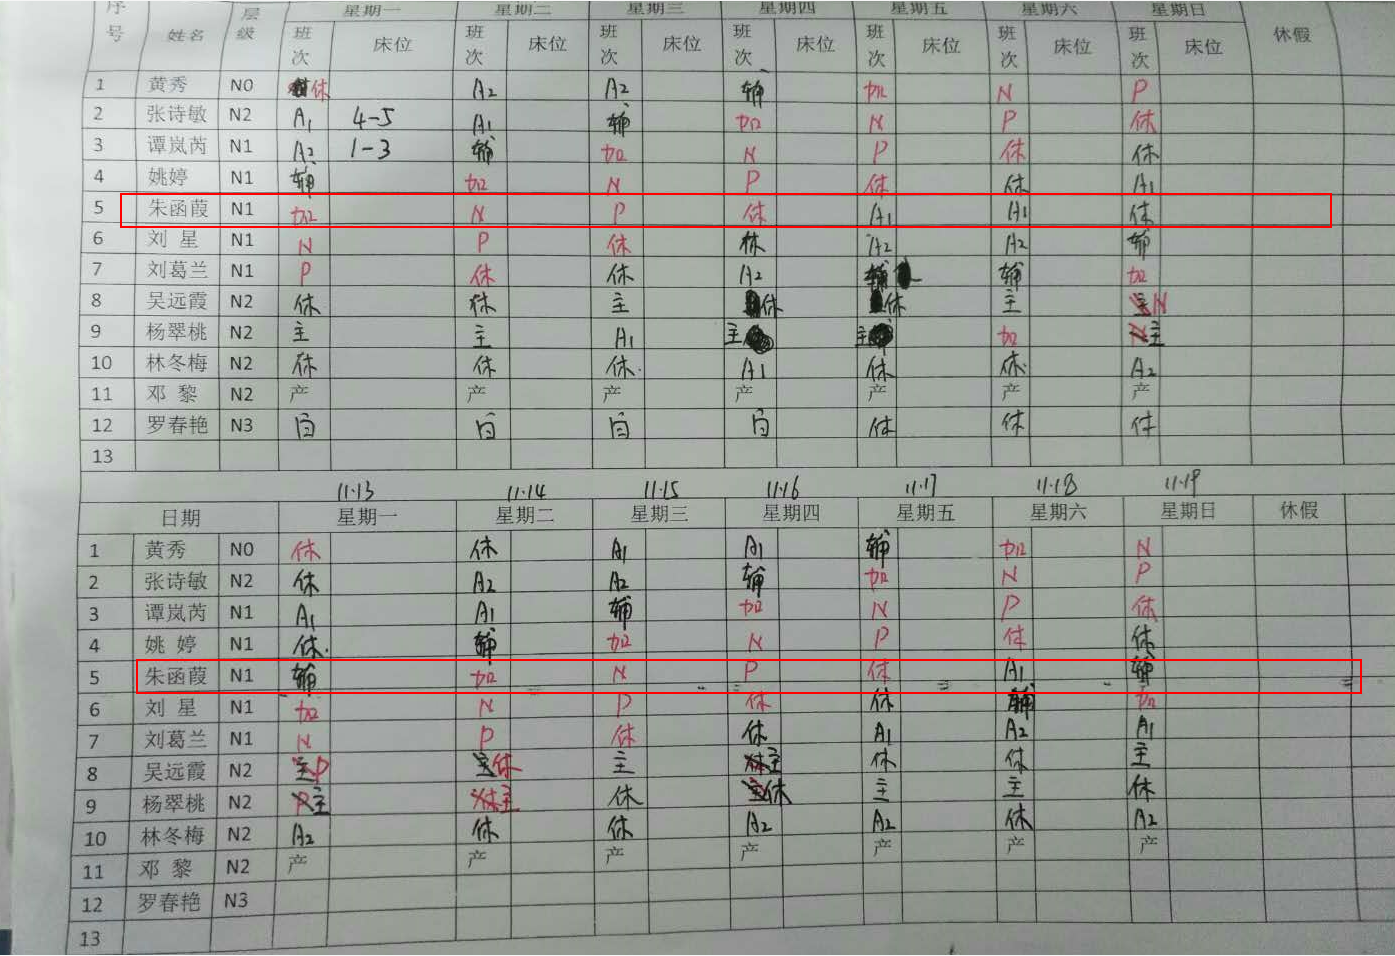 序号 姓名 层级 星期一 星期二 星期三 星期四 星期五 星期六 星期日 休假
班次 床位 班次 床位 班次 床位 班次 床位 班次 床位 班次 床位 班次 床位
1 黄秀 N0 休 A2 A2 辅 加 N P
2 张诗敏 N2 A1 4-5 A1 辅 加 N P 休
3 谭岚芮 N1 A2 1-3 辅 加 N P 休 休
4 姚婷 N1 辅 加 N P 休 休 A1
5 朱函葭 N1 加 N P 休 A1 A1 休
6 刘星 N1 N P 休 休 A2 A2 辅
7 刘葛兰 N1 P 休 休 A2 辅 辅 加
8 吴远霞 N2 休 休 主 休 休 主 N
9 杨翠桃 N2 主 主 A1 主 主 加 主
10 林冬梅 N2 休 休 休 A1 休 休 A2
11 邓黎 N2 产 产 产 产 产 产 产
12 罗春艳 N3 白 白 白 白 休 休 休
13
11.13 11.14 11.15 11.16 11.17 11.18 11.19
日期 星期一 星期二 星期三 星期四 星期五 星期六 星期日 休假
1 黄秀 N0 休 休 A1 A1 辅 加 N
2 张诗敏 N2 休 A2 A2 辅 加 N P
3 谭岚芮 N1 A1 A1 辅 加 N P 休
4 姚婷 N1 休 辅 加 N P 休 休
5 朱函葭 N1 辅 加 N P 休 A1 辅
6 刘星 N1 加 N P 休 休 辅 加
7 刘葛兰 N1 N P 休 休 A1 A2 A1
8 吴远霞 N2 P 休 主 主 休 休 主
9 杨翠桃 N2 主 主 休 休 主 主 休
10 林冬梅 N2 A2 休 休 A2 A2 休 A2
11 邓黎 N2 产 产 产 产 产 产 产
12 罗春艳 N3
13